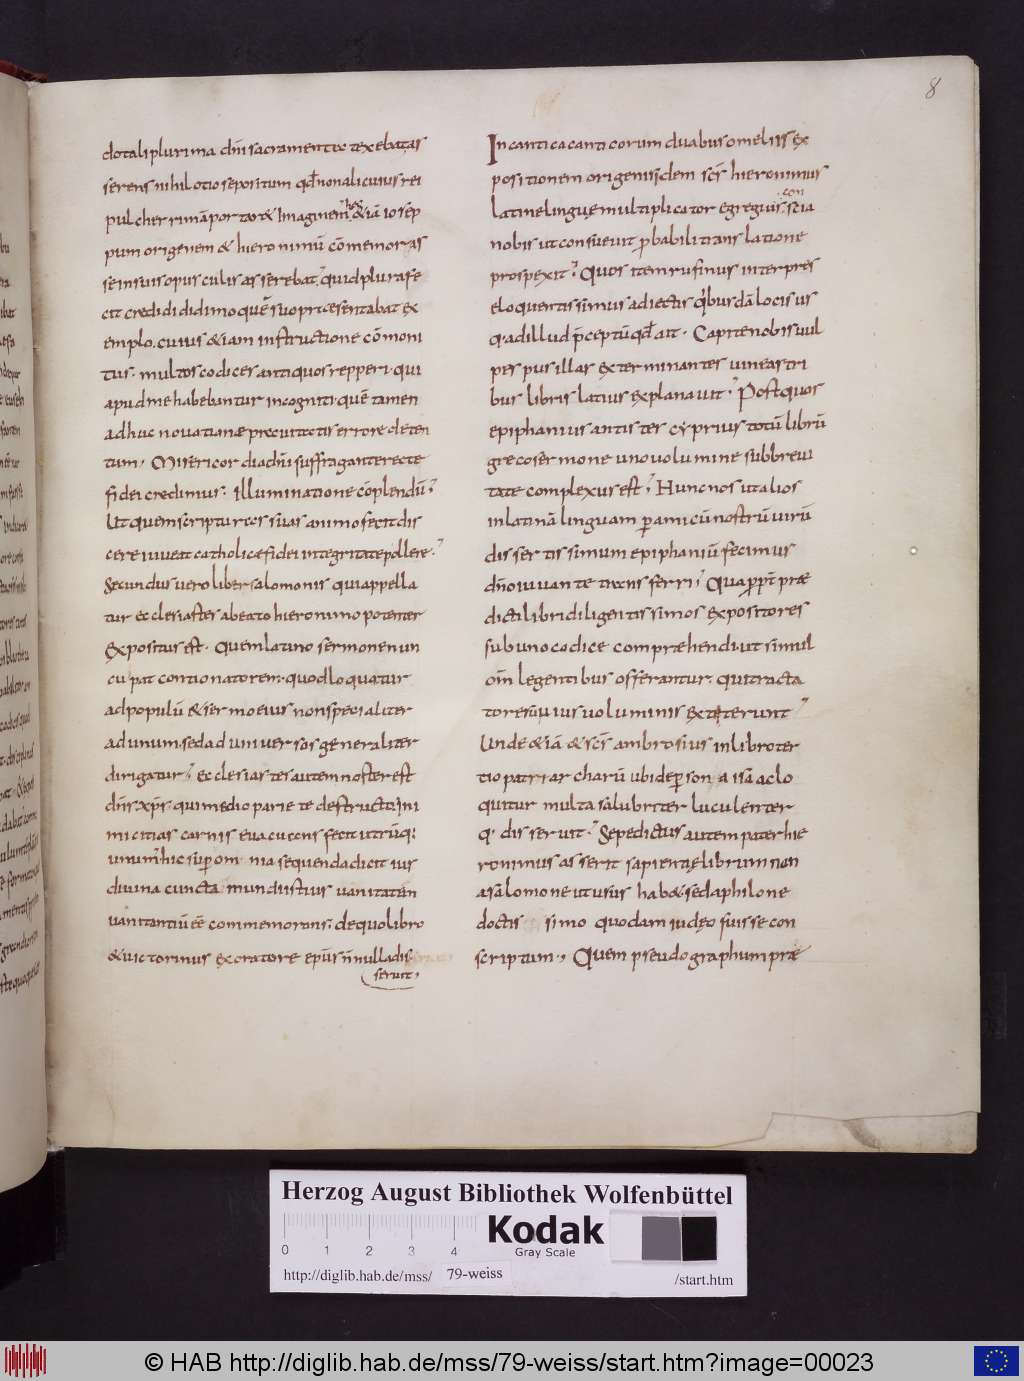 8
dotali plurima dñi sacramenta texebatas
serens nihil otiose positum qd̃ non alicuius rei
pulcherrimã portar& Imaginem. hos &iã iosep
pum origenem & hieronimũ cõmemoras
se insuis opusculis asserebat. quid plura fe
cit credi didimo quẽ suo presentabat ex
emplo. cuius &iam instructione cõmoni
tus. multos codices antiquos repperi. qui
apud me habebantur incogniti quẽ tamen
adhuc novatianæ precuitectis errore deten
tum, Misericordia dñi suffragante recte
fidei credimus. Illuminatione cõplendũ.
Ut quem scripturas suas animo fecit dis
cere iuveat catholice fidei integritate pollere.
Secundus uero liber salomonis qui appella
tur ecclesiastes abeato hieronimo potenter
Expositus est. Quem latino sermone nun
cupat contionatorem. quod loquatur
ad populũ & sermo eius non specialiter
ad unum. sed ad universos generaliter
dirigatur, Ecclesiastes autem noster est
dñs xp̃s. qui medio pariete destructo Ini
micitias carnis euacuans fecit utrũq;
unum. hic sup̱ omnia sequenda dicit ius
divina cuncta mundi istius uanitatẽ
uanitantiũ eẽ commemorans. de quo libro
& uictorinus ex oratore ep̃us ñ nulla dis
seruit,
In cantica canticorum duabus omeliis ex
positionem origenis idem sc̃s hieronimus
latine lingue multiplicator egregius. con scia
nobis ut consueuit p̱babili translatione
prospexit. Quos item rufinus interpres
eloquentissimus adiectis q̇busdã locis us
q. ad illud p̃ceptũ qd̃ ait. Capite nobis uul
pes pusillas exterminantes uineas tri
bus libris latius explanauit. Post quos
epiphanius antistes cyprius totũ librũ
greco sermone uno uolumine subbreui
tate complexus est. Hunc nos ut alios
in latinã linguam p̱ amicũ nostrũ uirũ
dissertissimum epiphaniũ fecimus
dño iuuante transferri. Quap̱p̱t̃ præ
dicti libri diligentissimos expositores
sub uno codice comprehendi. ut simul
om̃ legentibus offerantur. qui tracta
tores ũius uoluminis extiterunt
Unde &iã & sc̃s ambrosius in libro ter
tio patriarcharũ ubi de p̱sona isãac lo
quitur multa salubriter luculenter
q. disseruit. Sepedictus autem pater hie
ronimus asserit sapientię librum non
a salomone ut usus habet. sed a philone
doctissimo quodam iudeo fuisse con
scriptum., Quem pseudographum præ
Herzog August Bibliothek Wolfenbüttel
0 1 2 3 4
Kodak
Gray Scale
http://diglib.hab.de/mss/ 79-weiss /start.htm
© HAB http://diglib.hab.de/mss/79-weiss/start.htm?image=00023